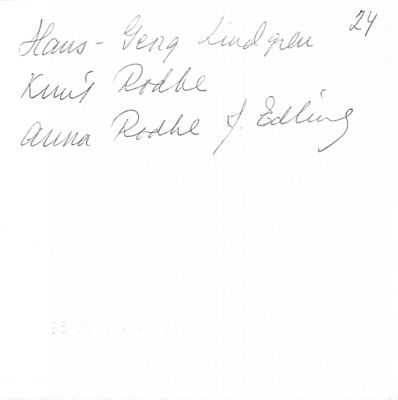 Hans-Georg Lindgren 24
Knut Rodhe
Anna Rodhe f. Edling